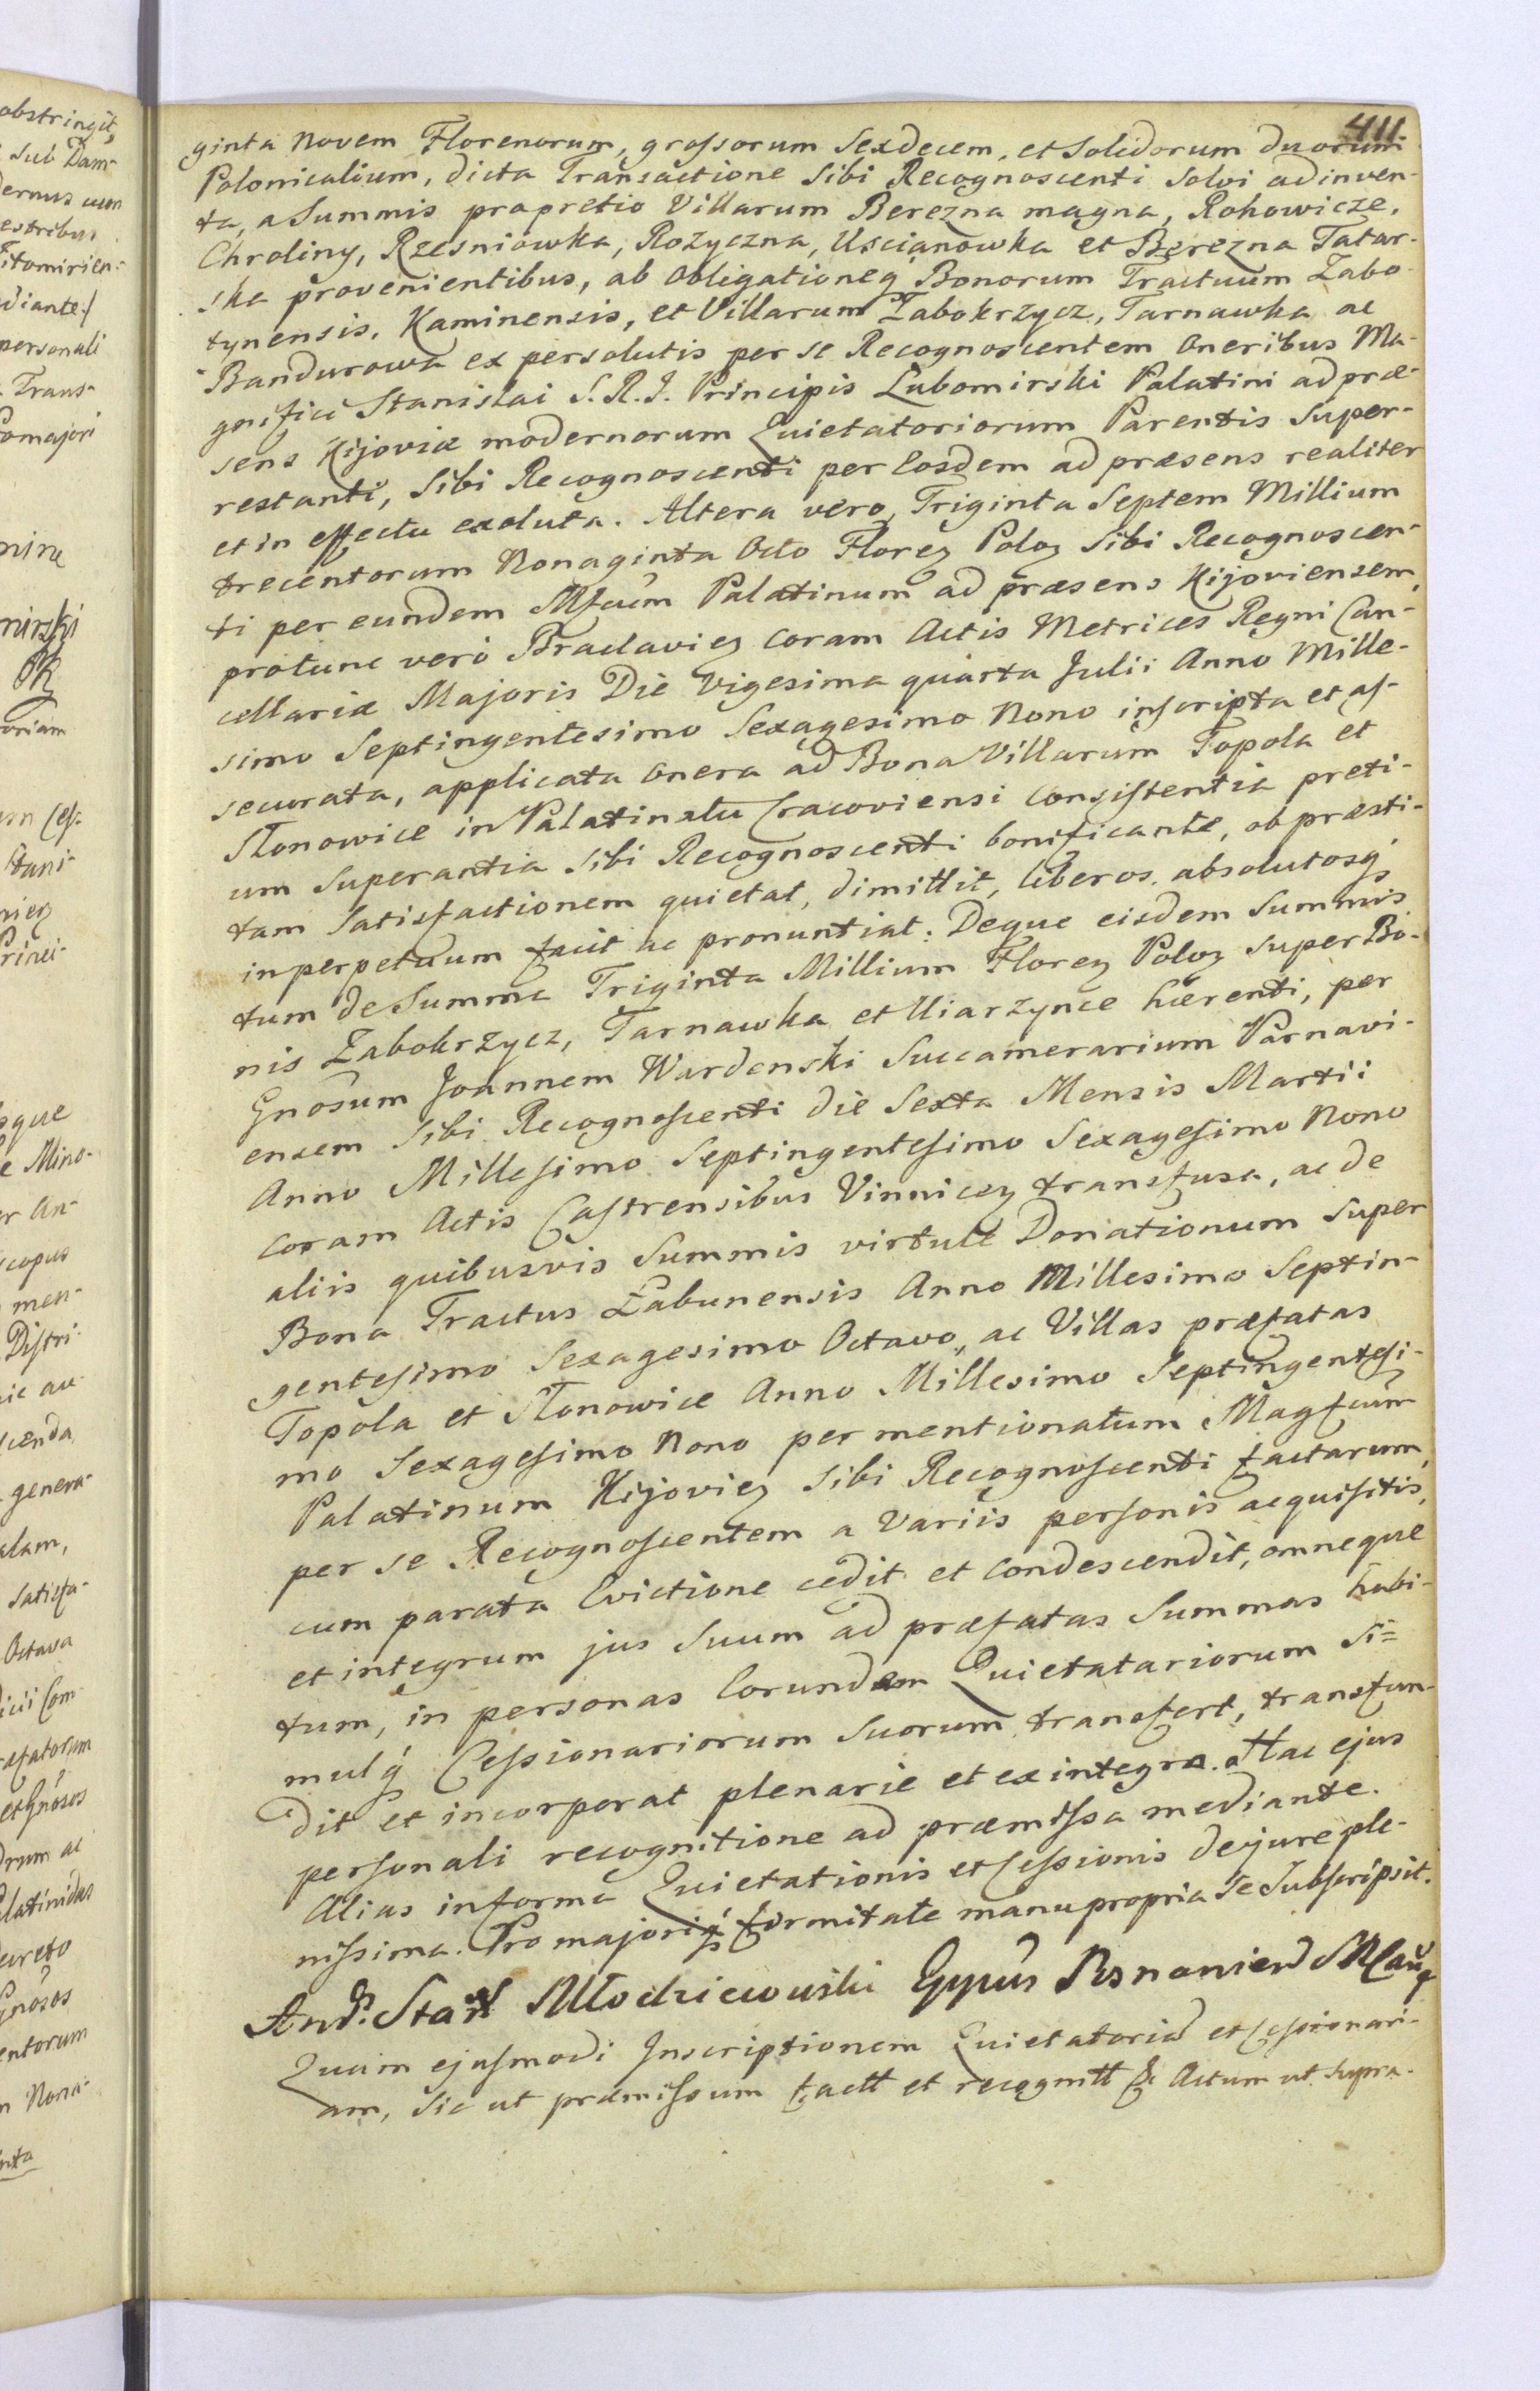 411
ginta Novem Florenorum, grossorum Sexdecem, et Solidorum duorum
Polonicalium, dicta Transactione Sibi Recognoscenti solvi adinven-
ta, a Summis propretio Villarum Berezna magna, Rohowicze,
Chroliny, Rzesniowka, Rozyczna, Uscianowka et Berezna Tatar-
ska provenientibus, ab obligationeq Bonorum Tractuum Zabo-
tynensis, Kaminensis, et Villarum Zabokrzycz, Tarnawka ac
Bandurowa ex persolutis per se Recognoscentem Oneribus Ma-
gnifici Stanislai S. R. J. Principis Lubomirski Palatini ad præ-
sens Kijoviæ modernorum Quietatoriorum Parentis Super-
restanti, Sibi Recognoscenti per Eosdem ad præsens realiter
et in effectu exoluta. Altera vero, Triginta Septem Millium
trecentorum Nonaginta Octo Florez Poloz Sibi Recognoscen-
ti per eundem Mfcum Palatinum ad præsens Kijoviensem,
protunc vero Braclaviez coram Actis Metrices Regni Can-
cellariæ Majoris Die Vigesima quarta Julii Anno Mille-
simo Septingentesimo Sexagesimo Nono inscripta et as-
securata, applicata Onera ad Bona Villarum Topola et
Stonowice in Palatinatu Cracoviensi Consistentia preti-
um Superantia Sibi Recognoscenti bonificante, ob præsti-
tam Satisfactionem quietat, dimittit, liberos absolutosq
in perpetuum facit ac pronuntiat. Deque eisdem Summis
tum de Summa Triginta Millium Florez Poloz Super Bo-
nis Zabokrzycz, Tarnawka et Uiarzynce hærenti, per
Gnosum Joannem Wardenski Succamerarium Parnavi-
ensem Sibi Recognoscenti die Sexta Mensis Martii
Anno Millesimo Septingentesimo Sexagesimo Nono
Coram Actis Castrensibus Vinnicez transfusa, ac de
aliis quibusvis Summis virtute Donationum Super
Bona Tractus Łabunensis Anno Millesimo Septin-
gentesimo Sexagesimo Octavo, ac Villas præfatas
Topola et Stonowice Anno Millesimo Septingentesi-
mo Sexagesimo Nono per mentionatum Magfcum
Palatinum Kijoviez Sibi Recognoscenti factarum,
per se Recognoscentem a Variis personis acquisitis,
cum parata Evictione cedit et Condescendit, omneque
et integrum jus Suum ad præfatas Summas habi-
tum, in personas Eorundem Quietatariorum Si=
mulq Cessionariorum Suorum transfert, transfun-
dit et incorporat plenarie et ex integro. Hac ejus
personali recognitione ad præmissa mediante.
Alias in forma Quietationis et Cessionis de jure ple-
nissima. Pro majoriq firmitate manu propria Se Subscripsit.
And. Stan Młodziewouski Eppus
Quam ejusmodi Inscriptionem Quietatoriā et Cessionari-
am, Sic ut præmissum factt et recognitt &c Actum ut Supra.
obstringit,
sub Dam-
estribus
diante/
personali
Trans-
omajori
oriam
Mino-
copus
men-
Distri-
genera-
Satisfa-
Octava
Com-
efatorum
et Gnosos
drum ac
latinidas
Gnosos
entorum
Nona-